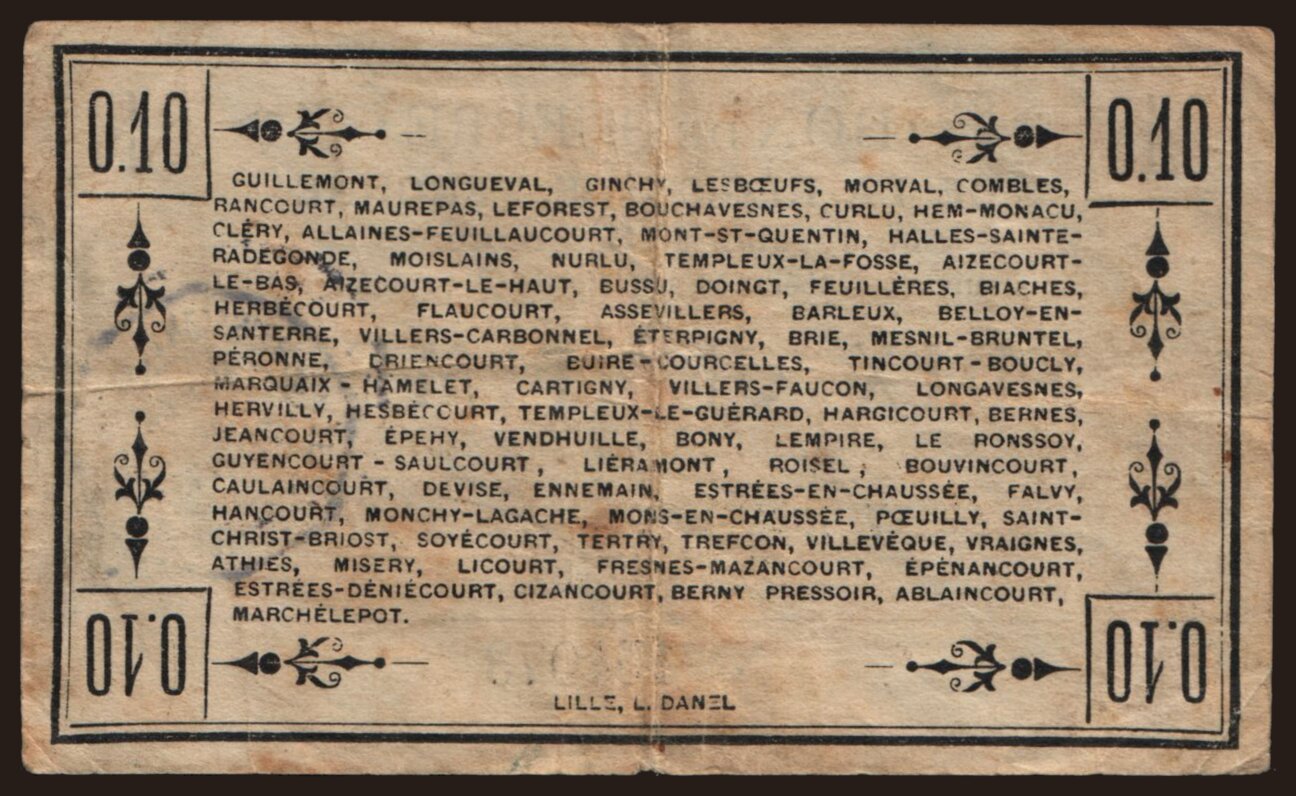 0.10 0.10
GUILLEMONT, LONGUEVAL, GINCHY, LESBŒUFS, MORVAL, COMBLES,
RANCOURT, MAUREPAS, LEFOREST, BOUCHAVESNES, CURLU, HEM-MONACU,
CLÉRY, ALLAINES-FEUILLAUCOURT, MONT-ST-QUENTIN, HALLES-SAINTE-
RADEGONDE, MOISLAINS, NURLU, TEMPLEUX-LA-FOSSE, AIZECOURT-
LE-BAS, AIZECOURT-LE-HAUT, BUSSU, DOINGT, FEUILLÈRES, BIACHES,
HERBÉCOURT, FLAUCOURT, ASSEVILLERS, BARLEUX, BELLOY-EN-
SANTERRE, VILLERS-CARBONNEL, ÉTERPIGNY, BRIE, MESNIL-BRUNTEL,
PÉRONNE, DRIENCOURT, BUIRE-COURCELLES, TINCOURT-BOUCLY,
MARQUAIX - HAMELET, CARTIGNY, VILLERS-FAUCON, LONGAVESNES,
HERVILLY, HESBÉCOURT, TEMPLEUX-LE-GUÉRARD, HARGICOURT, BERNES,
JEANCOURT, ÉPEHY, VENDHUILLE, BONY, LEMPIRE, LE RONSSOY,
GUYENCOURT - SAULCOURT, LIÉRAMONT, ROISEL, BOUVINCOURT,
CAULAINCOURT, DEVISE, ENNEMAIN, ESTRÉES-EN-CHAUSSÉE, FALVY,
HANCOURT, MONCHY-LAGACHE, MONS-EN-CHAUSSÉE, PŒUILLY, SAINT-
CHRIST-BRIOST, SOYÉCOURT, TERTRY, TREFCON, VILLEVÊQUE, VRAIGNES,
ATHIES, MISERY, LICOURT, FRESNES-MAZANCOURT, ÉPÉNANCOURT,
ESTRÉES-DÉNIÉCOURT, CIZANCOURT, BERNY PRESSOIR, ABLAINCOURT,
MARCHÉLEPOT.
0.10 0.10
LILLE, L. DANEL